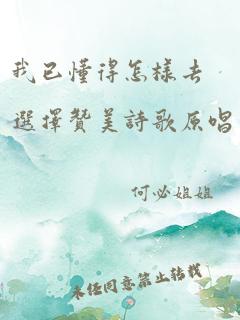 我已懂得怎樣去
選擇贊美詩歌原唱
何必姐姐
未经同意禁止转载